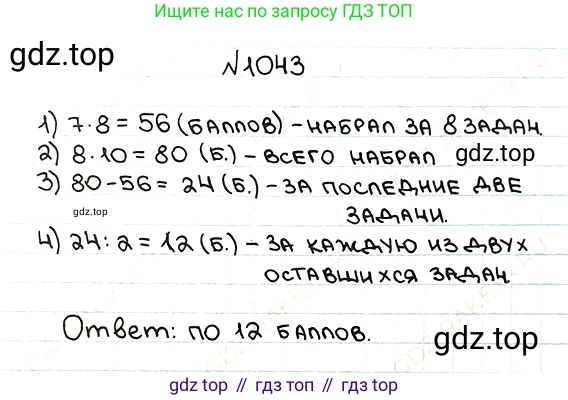 Ищите нас по запросу ГДЗ ТОП
gdz.top
№1043
1) 7·8=56 (баллов) – набрал за 8 задач.
2) 8·10=80 (б.) – всего набрал
gdz.top
3) 80-56=24 (б.) – за последние две
gdz.top
задачи.
4) 24:2=12 (б.) – за каждую из двух
оставшихся задач
Ответ: по 12 баллов.
gdz.top
gdz top // гдз топ // гдз.топ